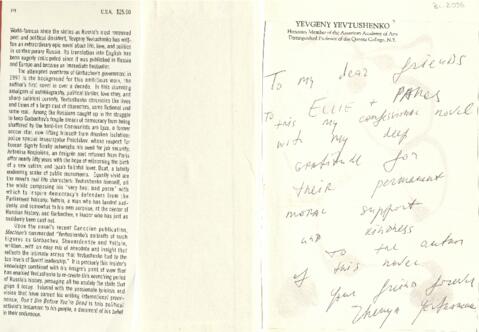 FPT
U.S.A. $25.00
World-famous since the sixties as Russia's most renowned
poet and political dissident, Yevgeny Yevtushenko has writ-
ten an extraordinary epic novel about life, love, and politics
in contemporary Russia. Its translation into English has
been eagerly anticipated since it was published in Russia
and Europe and became an immediate bestseller.
The attempted overthrow of Gorbachev's government in
1991 is the background for this ambitious work, the
author's first novel in over a decade. In this stunning
amalgam of autobiography, political thriller, love story, and
sharp cultural comedy, Yevtushenko chronicles the lives
and times of a large cast of characters, some fictional and
some real. Among the Russians caught up in the struggle
to keep Gorbachev's fragile dream of democracy from being
shattered by the hard-line Communists are
soccer star, now lifting himself from drunken isolation;
police special investigator Palchikov, whose respect for
human dignity finally outweighs his need for job security;
an emigre who returned from Paris
after nearly fifty years with the hope of witnessing the birth
of a new nation; and
Equally vivid are
the novel's real life characters: Yevtushenko himself, all
the while composing his "very bad best poem" with
which to inspire democracy's defenders from the
Parliament balcony; Yeltsin, a man who has landed sud-
denly, and somewhat to his own surprise, at the center of
Russian history; and Gorbachev, a leader who has just as
suddenly been cast out.
Upon the novel's recent Canadian publication,
Maclean's commended "Yevtushenko's portraits of such
figures as Gorbachev, Shevardnadze and Yeltsin,
written...with an easy mix of anecdote and insight that
reflects the intimate access that Yevtushenko had to the
top levels of Soviet leadership." It is precisely this insider's
knowledge combined with his insight
has enabled Yevtushenko to re-create this
of Russia's history, presaging all too acutely the state that
grips it today. Imbued with the passionate lyricism and
vision that have earned his writing international prove-
nance, Don't Die Before You're Dead is this political
activist's testament to his people, a document of his belief
in their endurance.
YEVGENY YEVTUSHENKO
Honorary Member of the American Academy of Arts
Distinguished Professor of the Queens College, N.Y.
To my dear friends
To ELLIE +
this my confessional novel
with my deep
gratitude for
their permanent
moral support
and kindness
to the author
of this novel
Your friend forever
Zhenya Yevtushenko